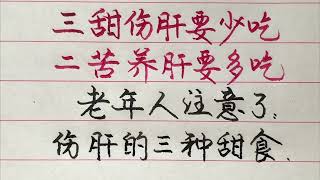 三甜伤肝要少吃
二苦养肝要多吃
老年人注意了:
伤肝的三种甜食.